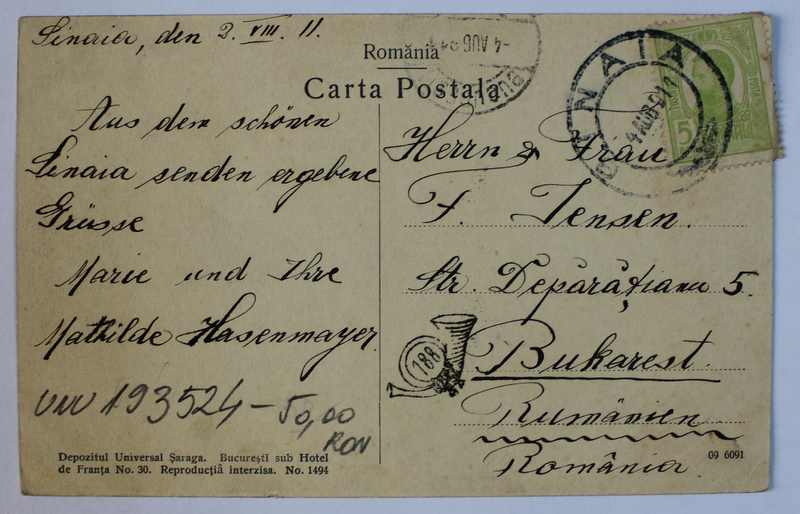 Sinaia, den 2. VIII. 11.
România
Carta Postala
Aus dem schönen
Sinaia senden ergebene
Grüsse
Marie und Ihre
Mathilde Hasenmayer.
193524 - 50,00
RON
Depozitul Universal Şaraga. Bucureştĭ sub Hotel
de Franţa No. 30. Reproducţiă interzisa. No. 1494
4 AUG
SINAIA
4 AUG 911
5
Herrn & Frau
F. Jensen.
Str. Depărăţianu 5.
188
Bukarest
Rumänien
România
09 6091